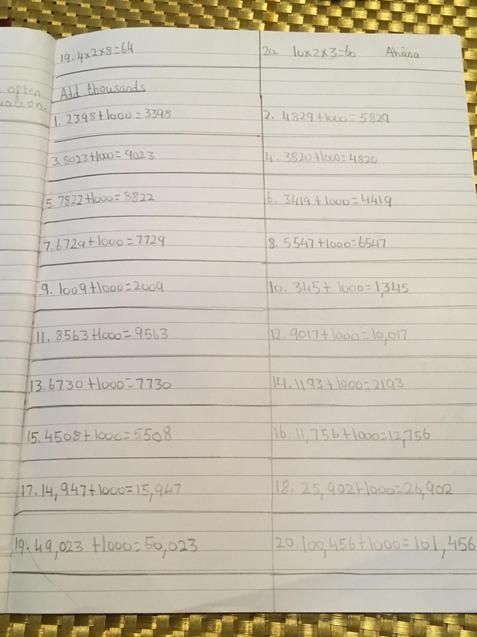 19. 4x2x8=64
20. 10x2x3=60 Ahana
often
Add thousands
1. 2398+1000=3398
2. 4829+1000=5829
3. 8023+1000=9023
4. 3820+1000=4820
5. 7822+1000=8822
6. 3419+1000=4419
7. 6729+1000=7729
8. 5547+1000=6547
9. 1009+1000=2009
10. 345+1000=1,345
11. 8563+1000=9563
12. 9017+1000=10,017
13. 6730+1000=7730
14. 1193+1000=2193
15. 4508+1000=5508
16. 11,756+1000=12,756
17. 14,947+1000=15,947
18. 25,902+1000=26,902
19. 49,023+1000=50,023
20. 100,456+1000=101,456